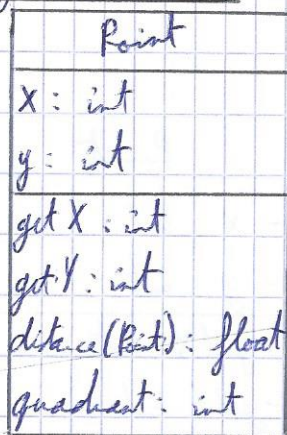 Point
x : int
y : int
get X : int
get Y : int
distance (Point) : float
quadrant : int